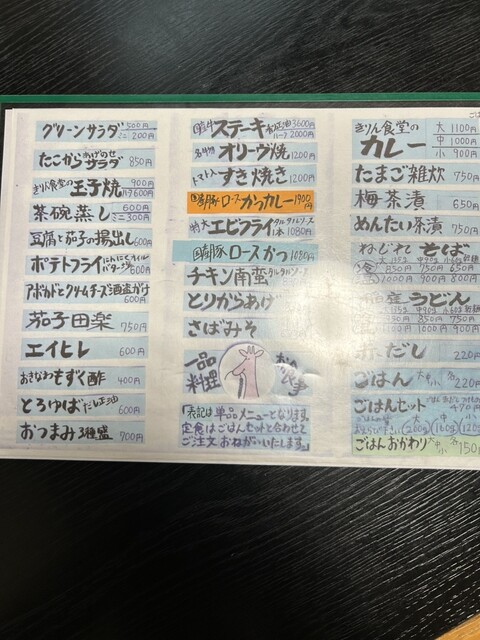 グリーンサラダ 500円
ミニ 200円
たこからあげのせサラダ 850円
きりん食堂の玉子焼 900円
ハーフ 600円
茶碗蒸し 600円
ミニ 300円
豆腐と茄子の揚出し 600円
ポテトフライ
600円
アボカドとクリームチーズ酒盗がけ
600円
茄子田楽 750円
エイヒレ 600円
おきなわもずく酢 400円
とろゆば だし正油 600円
おつまみ 3種盛 700円
ステーキ 3600円
ハーフ 2000円
名物 オリーヴ焼 1200円
トマト入 すき焼き 1200円
国産豚ロースかつカレー 1900円
特大 エビフライ タルタルソース
1本 1080円
国産豚ロースかつ 1080円
チキン南蛮 タルタルソース
とりからあげ
さばみそ
一品料理 お食事
「表記は単品メニューとなります。
定食はごはんセットと合わせて
ご注文おねがいいたします。」
きりん食堂のカレー 大 1100円
中 1000円
小 900円
たまご雑炊 750円
梅茶漬 650円
めんたい茶漬 750円
そば
850円 750円 650円
1000円 900円 800円
うどん
850円 750円
1000円 900円
赤だし 220円
ごはん 大中小 各220円
ごはんセット
470円
(200g) (160g) (120g
ごはんおかわり 大中小 各150円